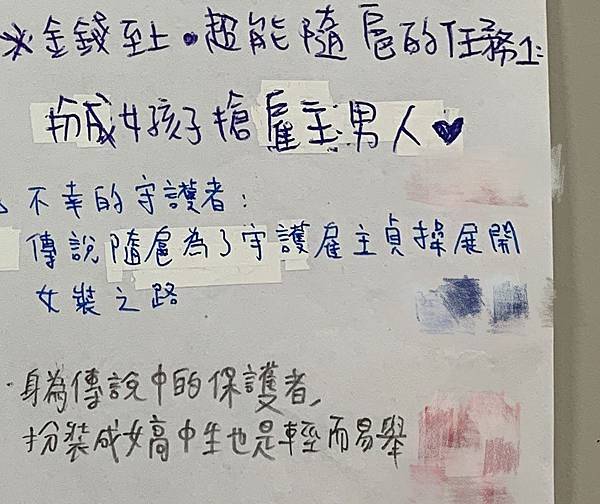 ※金錢至上•超能隨扈的任務1:
扮成女孩子搶雇主男人♥
不幸的守護者:
傳說隨扈為了守護雇主貞操展開
女裝之路
身為傳說中的保護者,
扮裝成女高中生也是輕而易舉